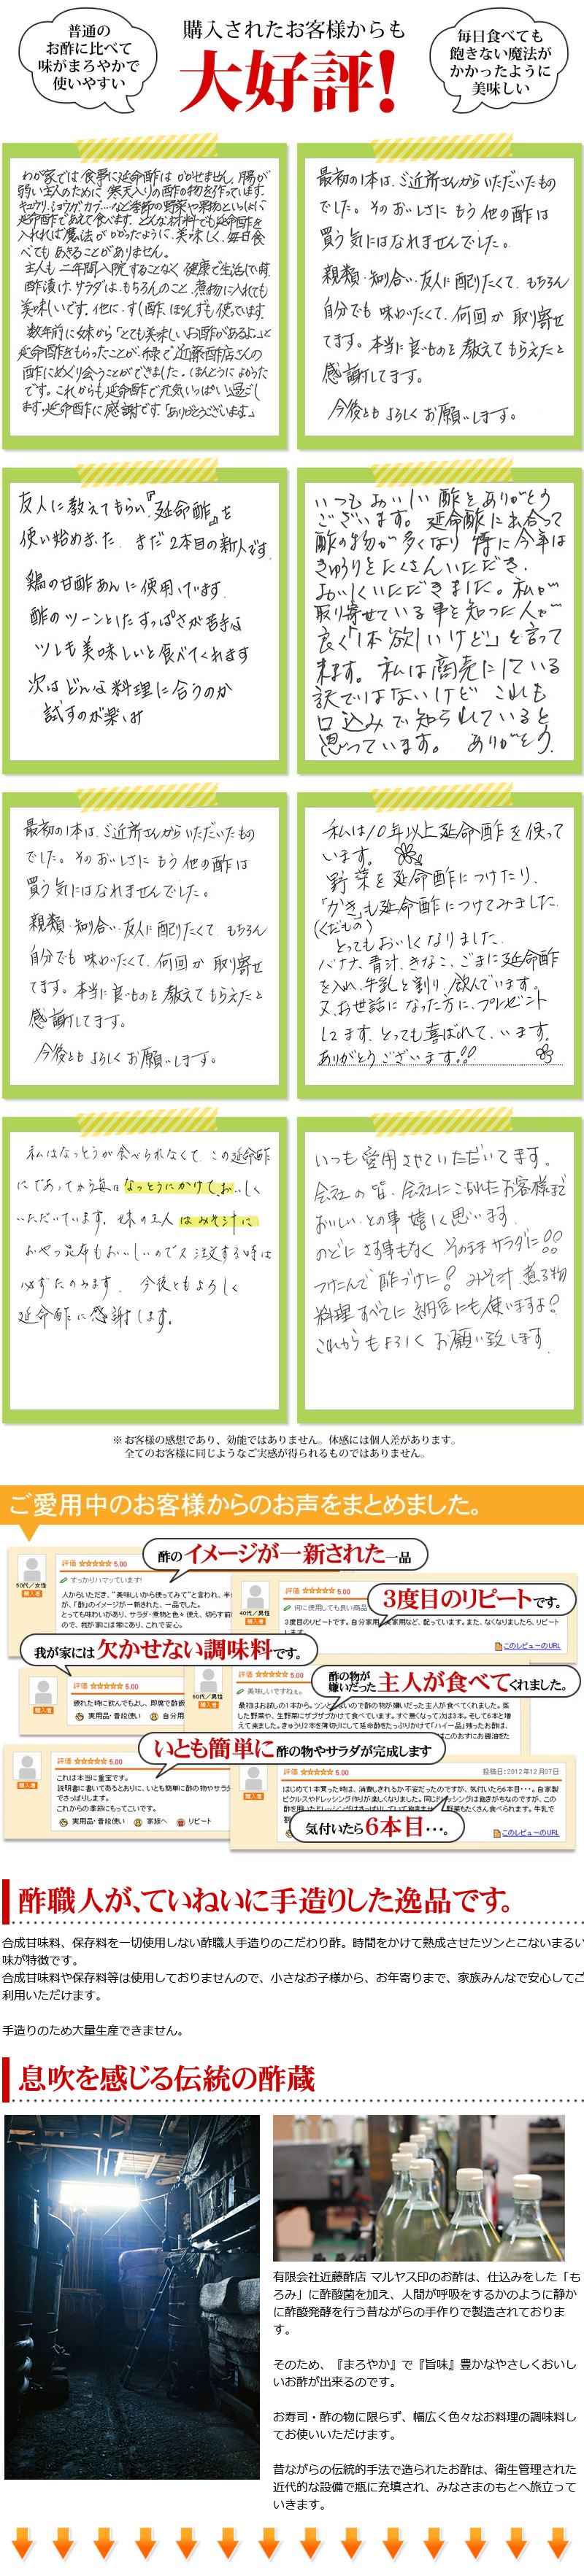 普通の
お酢に比べて
味がまろやかで
使いやすい
購入されたお客様からも
大好評!
毎日食べても
飽きない魔法が
かかったように
美味しい
わが家では食事に延命酢はかかせません。腸が
弱い主人のために寒天入りの酢の物を作っています。
キュウリ、ショウガ、カブ…など季節の野菜や果物といっしょに
延命酢であえて食べます。どんな材料でも延命酢を
入れれば魔法がかかったように、美味しく、毎日食
べてもあきることがありません。
主人も二年間入院することなく健康で生活して
酢漬け、サラダは、もちろんのこと、煮物に入れても
美味しいです。他に、すし酢、ぽんずも使っています。
数年前に妹から「とても美味しいお酢があるよ。」と
延命酢をもらったことが、縁で近藤酢店さんの
酢にめぐり会うことができました。ほんとうによかった
です。これからも延命酢で元気いっぱい過ごし
ます。延命酢に感謝です。「ありがとうございます。」
最初の1本は、ご近所さんからいただいたもの
でした。そのおいしさに もう他の酢は
買う気にはなれませんでした。
親類・知り合い・友人に配りたくて、もちろん
自分でも 味わいたくて、何回か 取り寄せ
てます。本当に良いものを 教えてもらえたと
感謝してます。
今後とも よろしく お願いします。
友人に教えてもらい『延命酢』を
使い始めました。まだ2本目の新人です。
鶏の甘酢あんに使用しています。
酢のツーンとしたすっぱさが苦手な
ツレも美味しいと食べてくれます
次はどんな料理に合うのか
試すのが楽しみ
いつもおいしい酢をありがとう
ございます。延命酢に出合って
酢の物が多くなり 特に今年は
きゅうりをたくさんいただき、
おいしくいただきました。私が
取り寄せている事を知った人が
良く「1本欲しいけど」を言って
来ます。私は商売にしている
訳ではないけど これも
口込みで知られていると
思っています。 ありがとう。
最初の1本は、ご近所さんからいただいたもの
でした。そのおいしさに もう他の酢は
買う気にはなれませんでした。
親類・知り合い・友人に配りたくて、もちろん
自分でも 味わいたくて、何回か 取り寄せ
てます。本当に良いものを 教えてもらえたと
感謝してます。
今後とも よろしく お願いします。
私は10年以上延命酢を使って
います。
野菜を延命酢につけたり、
「かき」も延命酢につけてみました。
(くだもの)
とってもおいしくなりました。
バナナ、青汁、きなこ、ごまに延命酢
を入れ、牛乳と割り、飲んでいます。
又、お世話になった方に、プレゼント
します、とっても喜ばれて、います。
ありがとうございます!!
私はなっとうが食べられなくて、この延命酢
にであってから毎日なっとうにかけておいしく
いただいています。妹の主人はみそ汁に
おやつ昆布もおいしいので又注文する時は
必ずたのみます。 今後ともよろしく
延命酢に感謝します。
いつも愛用させていただいてます。
会社の皆、会社にこられたお客様まで
おいしいとの事 嬉しく思います。
のどにさす事もなく そのままサラダに!!
つけこんで酢づけに! みそ汁、煮る物
料理すべてに 納豆にも使いますよ!
これからもよろしくお願い致します。
※お客様の感想であり、効能ではありません。体感には個人差があります。
全てのお客様に同じようなご実感が得られるものではありません。
ご愛用中のお客様からのお声をまとめました。
酢のイメージが一新された一品
50代／女性
購入者
評価 ☆☆☆☆☆ 5.00
すっかりハマッています!
人からいただき、"美味しいから使ってみて"と言われ、半
が、「酢」のイメージが一新された、一品でした。
とっても味わいがあり、サラダ・煮物と色々使え、切らす前
ので、我が家には常にあり、これで安心。
40代／男性
購入者
評価 ☆☆☆☆☆ 5.00
何に使用しても良い商品
3度目のリピートです。
3度目のリピートです。自分家用、実家用など、配っています。また、なくなりましたら、リピート
します。
このレビューのURL
我が家には欠かせない調味料です。
購入者
評価 ☆☆☆☆☆ 5.00
疲れた時に飲んでもよし、即席で酢飯
実用品・普段使い
自分用
60代／男性
購入者
評価 ☆☆☆☆☆ 5.00
美味しいですねぇ。
酢の物が
嫌いだった主人が食べてくれました。
最初はお試しの1本から。ツンとしないので酢の物が嫌いだった主人が食べてくれました。蒸
した野菜や、生野菜にザブザブかけて食べています。すぐ無くなって次は3本。そして6本と増
えて来ました。きゅうり2本を薄切りにして延命酢をたっぷりかけて「ハイ一品」残ったお酢は、
いとも簡単に酢の物やサラダが完成します
購入者
評価 ☆☆☆☆☆ 5.00
これは本当に重宝です。
説明書に書いてあるとおりに、いとも簡単に酢の物やサラダ
でさっぱりします。
これからの季節にもってこいです。
実用品・普段使い
家族へ
リピート
購入者
評価 ☆☆☆☆☆ 5.00
投稿日:2012年12月07日
はじめて1本買った時は、消費しきれるか不安だったのですが、気付いたら6本目・・・。自家製
ピクルスやドレッシング作りが楽しくなりました。同じドレッシングは飽きがちなのですが、この
気付いたら6本目…。
このレビューのURL
酢職人が、ていねいに手造りした逸品です。
合成甘味料、保存料を一切使用しない酢職人手造りのこだわり酢。時間をかけて熟成させたツンとこないまるい
味が特徴です。
合成甘味料や保存料等は使用しておりませんので、小さなお子様から、お年寄りまで、家族みんなで安心してご
利用いただけます。
手造りのため大量生産できません。
息吹を感じる伝統の酢蔵
有限会社近藤酢店 マルヤス印のお酢は、仕込みをした「も
ろみ」に酢酸菌を加え、人間が呼吸をするかのように静か
に酢酸発酵を行う昔ながらの手作りで製造されておりま
す。
そのため、『まろやか』で『旨味』豊かなやさしくおいし
いお酢が出来るのです。
お寿司・酢の物に限らず、幅広く色々なお料理の調味料とし
てお使いいただけます。
昔ながらの伝統的手法で造られたお酢は、衛生管理された
近代的な設備で瓶に充填され、みなさまのもとへ旅立って
いきます。